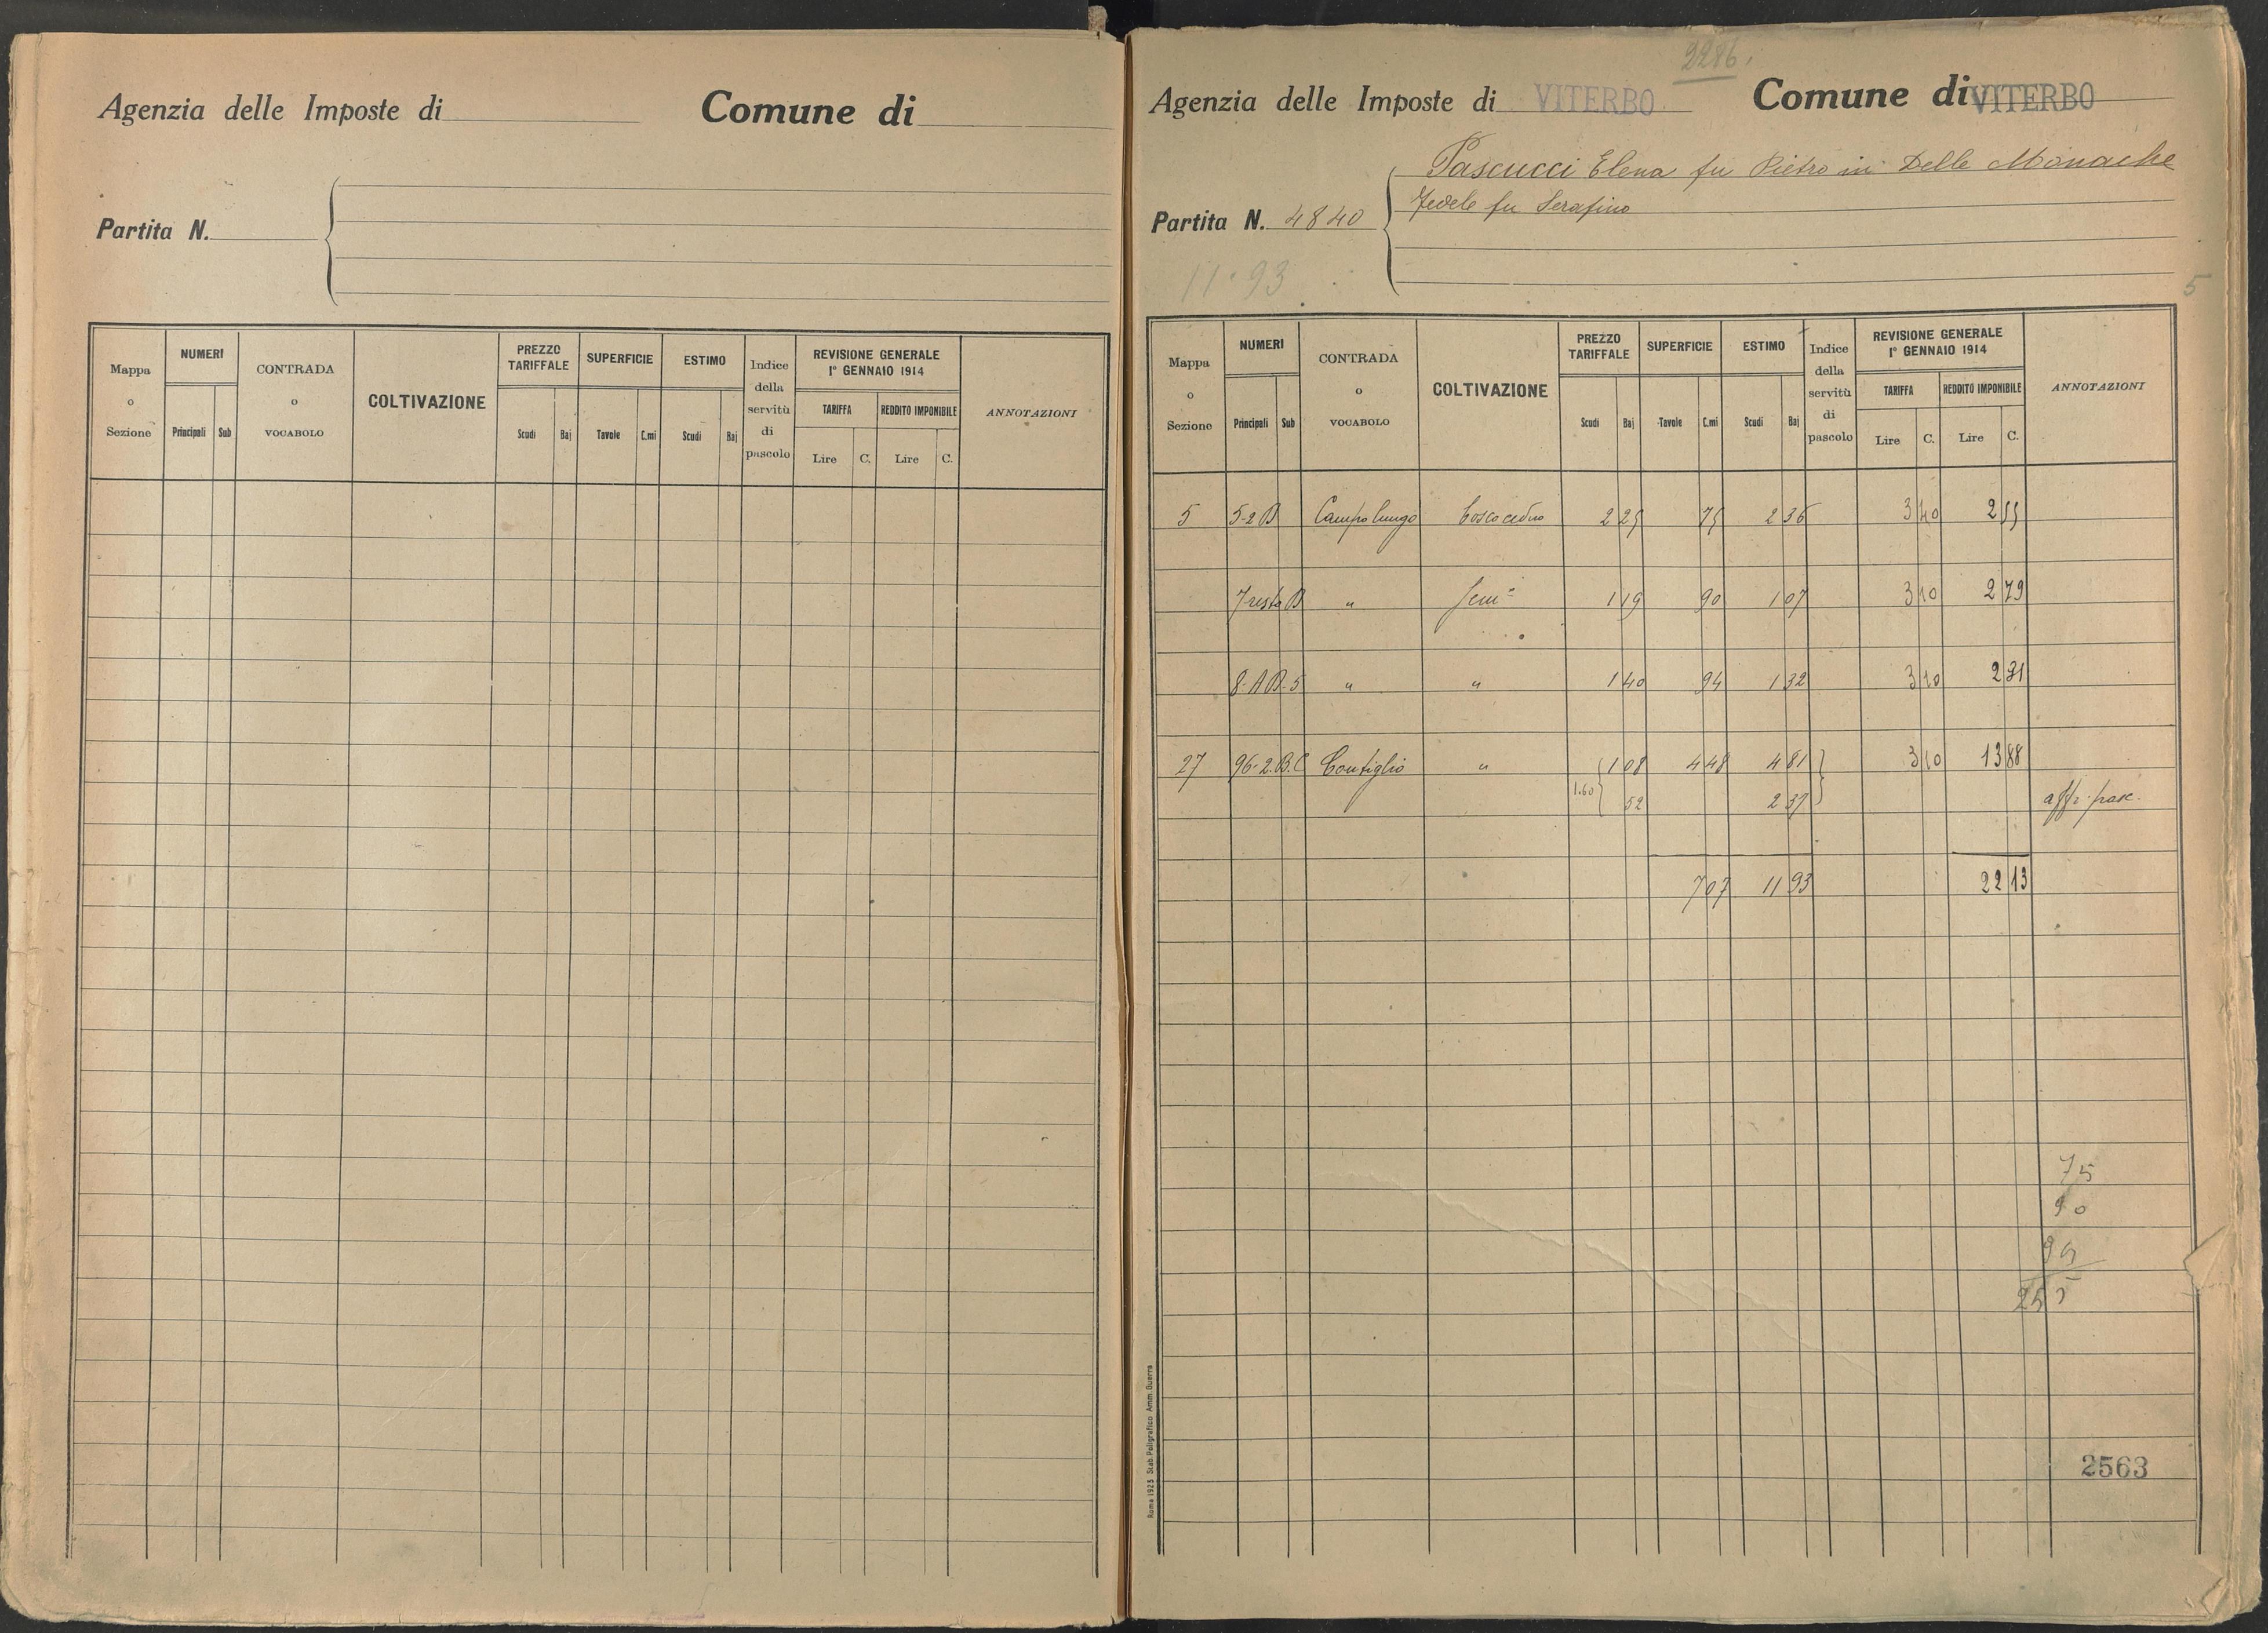 Agenzia delle Imposte di Comune di
Partita N.
Mappa o Sezione NUMERI Principali Sub CONTRADA o VOCABOLO COLTIVAZIONE PREZZO TARIFFALE Scudi Baj SUPERFICIE Tavole C.mi ESTIMO Scudi Baj Indice della servitù di pascolo REVISIONE GENERALE 1° GENNAIO 1914 TARIFFA Lire C. REDDITO IMPONIBILE Lire C. ANNOTAZIONI
2286.
Agenzia delle Imposte di VITERBO Comune di VITERBO
Pascucci Elena fu Pietro in Delle Monache
Fedele fu Serafino
Partita N. 4840
11.93
5
Mappa o Sezione NUMERI Principali Sub CONTRADA o VOCABOLO COLTIVAZIONE PREZZO TARIFFALE Scudi Baj SUPERFICIE Tavole C.mi ESTIMO Scudi Baj Indice della servitù di pascolo REVISIONE GENERALE 1° GENNAIO 1914 TARIFFA Lire C. REDDITO IMPONIBILE Lire C. ANNOTAZIONI
5 5-2 B Campo lungo bosco ceduo 2 25 75 2 36 3 40 2 55
7 resto B " Sem° 1 19 90 1 07 3 10 2 79
8-AB-5 " " 1 40 94 1 32 3 10 2 91
27 96-2.B.C " 1 08 4 48 4 81 3 10 13 88
1.60 52 2 37 affr. pasc.
7 07 11 93 22 13
75
90
255
2563
Roma 1923 Stab. Poligrafico Amm. Guerra